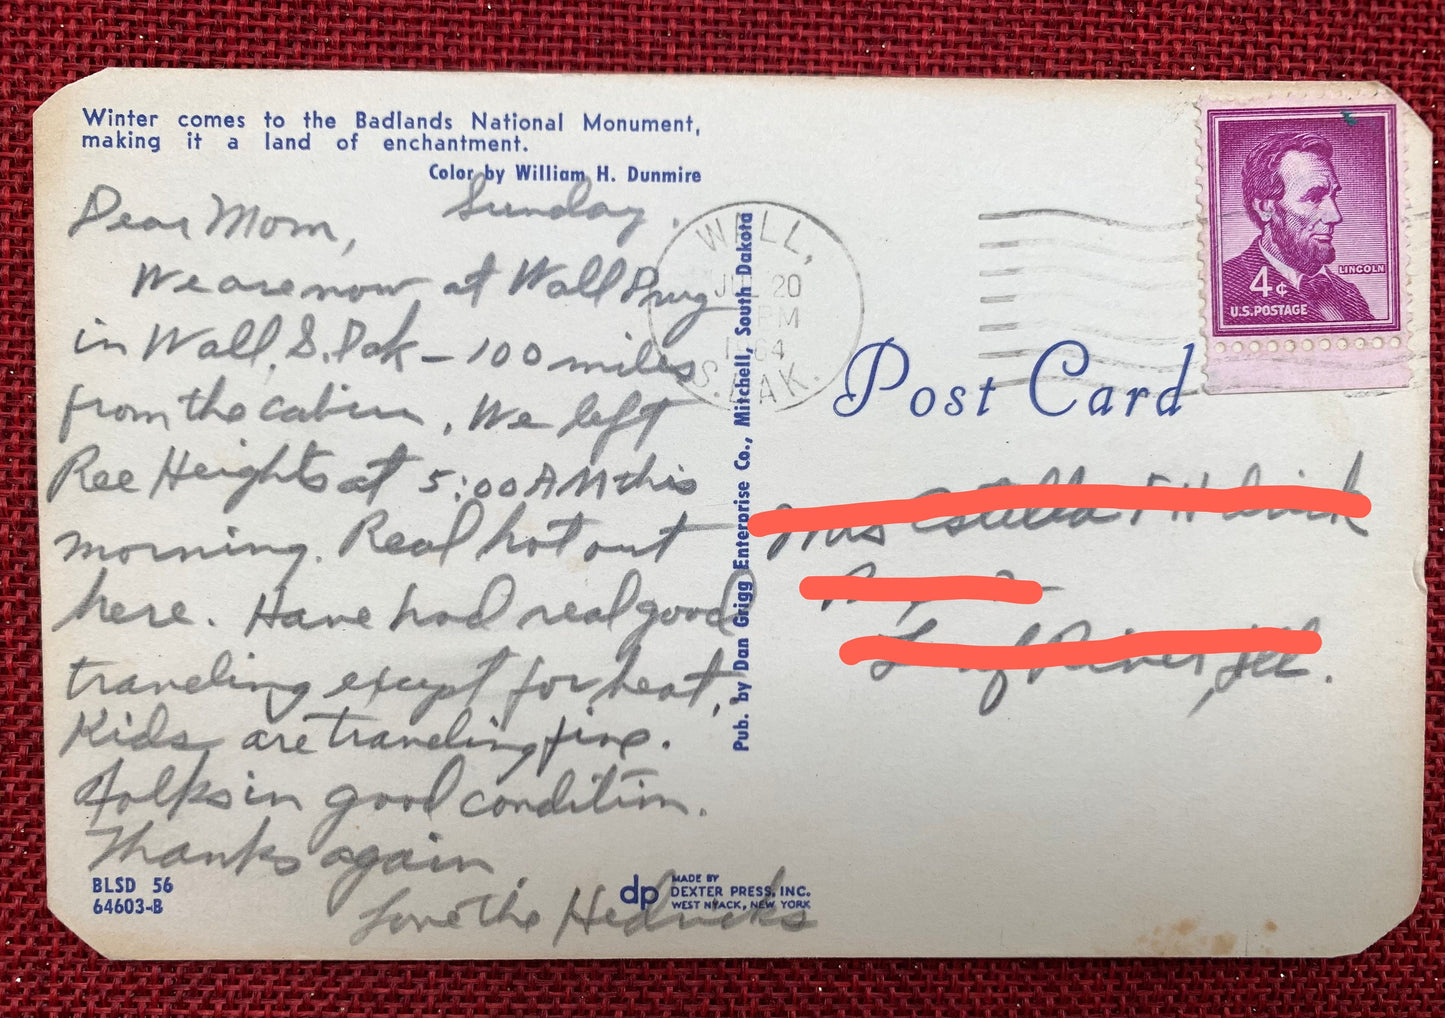 Winter comes to the Badlands National Monument,
making it a land of enchantment.
Color by William H. Dunmire
Sunday.
Dear Mom,
We are now at Wall Drug
in Wall, S. Dak – 100 miles
from the cabin. We left
Ree Heights at 5:00 AM this
morning. Real hot out
here. Have had real good
traveling except for heat.
Kids are traveling fine.
Folks in good condition.
Thanks again.
Love the Hedricks
BLSD 56
64603-B
dp
MADE BY
DEXTER PRESS, INC.
WEST NYACK, NEW YORK
Pub. by Dan Grigg Enterprise Co., Mitchell, South Dakota
WALL,
JUL 20
PM
1964
S. DAK.
LINCOLN
4¢
U.S. POSTAGE
Post Card
Mrs Estella
River, Ill.